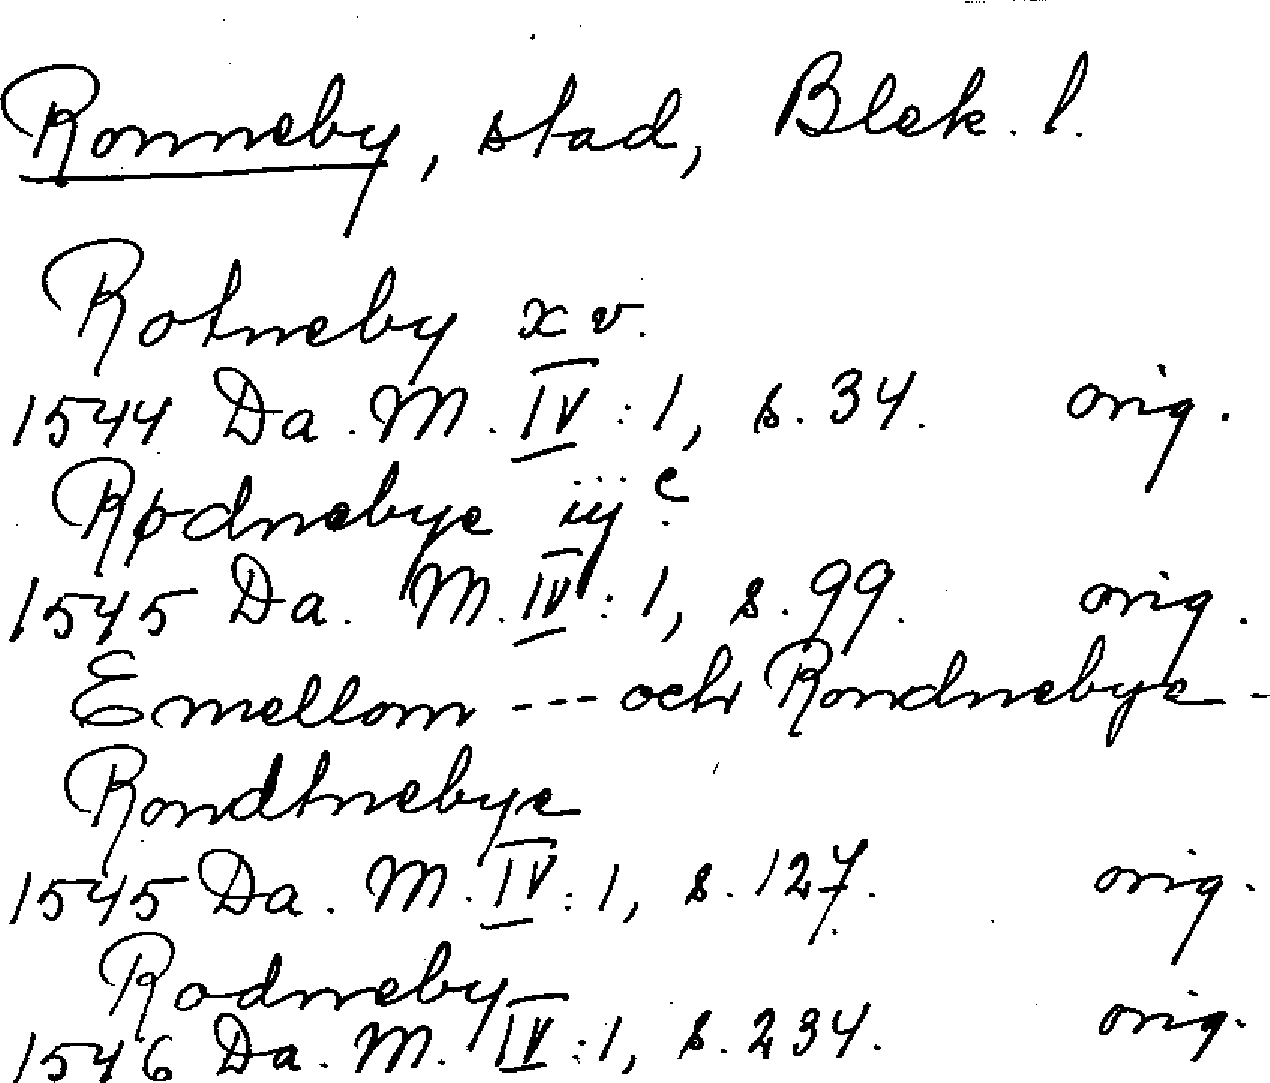 Ronneby, stad, Blek. l.
Rotneby xv.
1544 Da. M. IV:1, s. 34. orig.
Rødnebye iijc.
1545 Da. M. IV:1, s. 99. orig.
Emellom --- och Rondnebye -
Rondtnebye
1545 Da. M. IV:1, s. 127. orig.
Rodneby
1546 Da. M. IV:1, s. 234. orig.